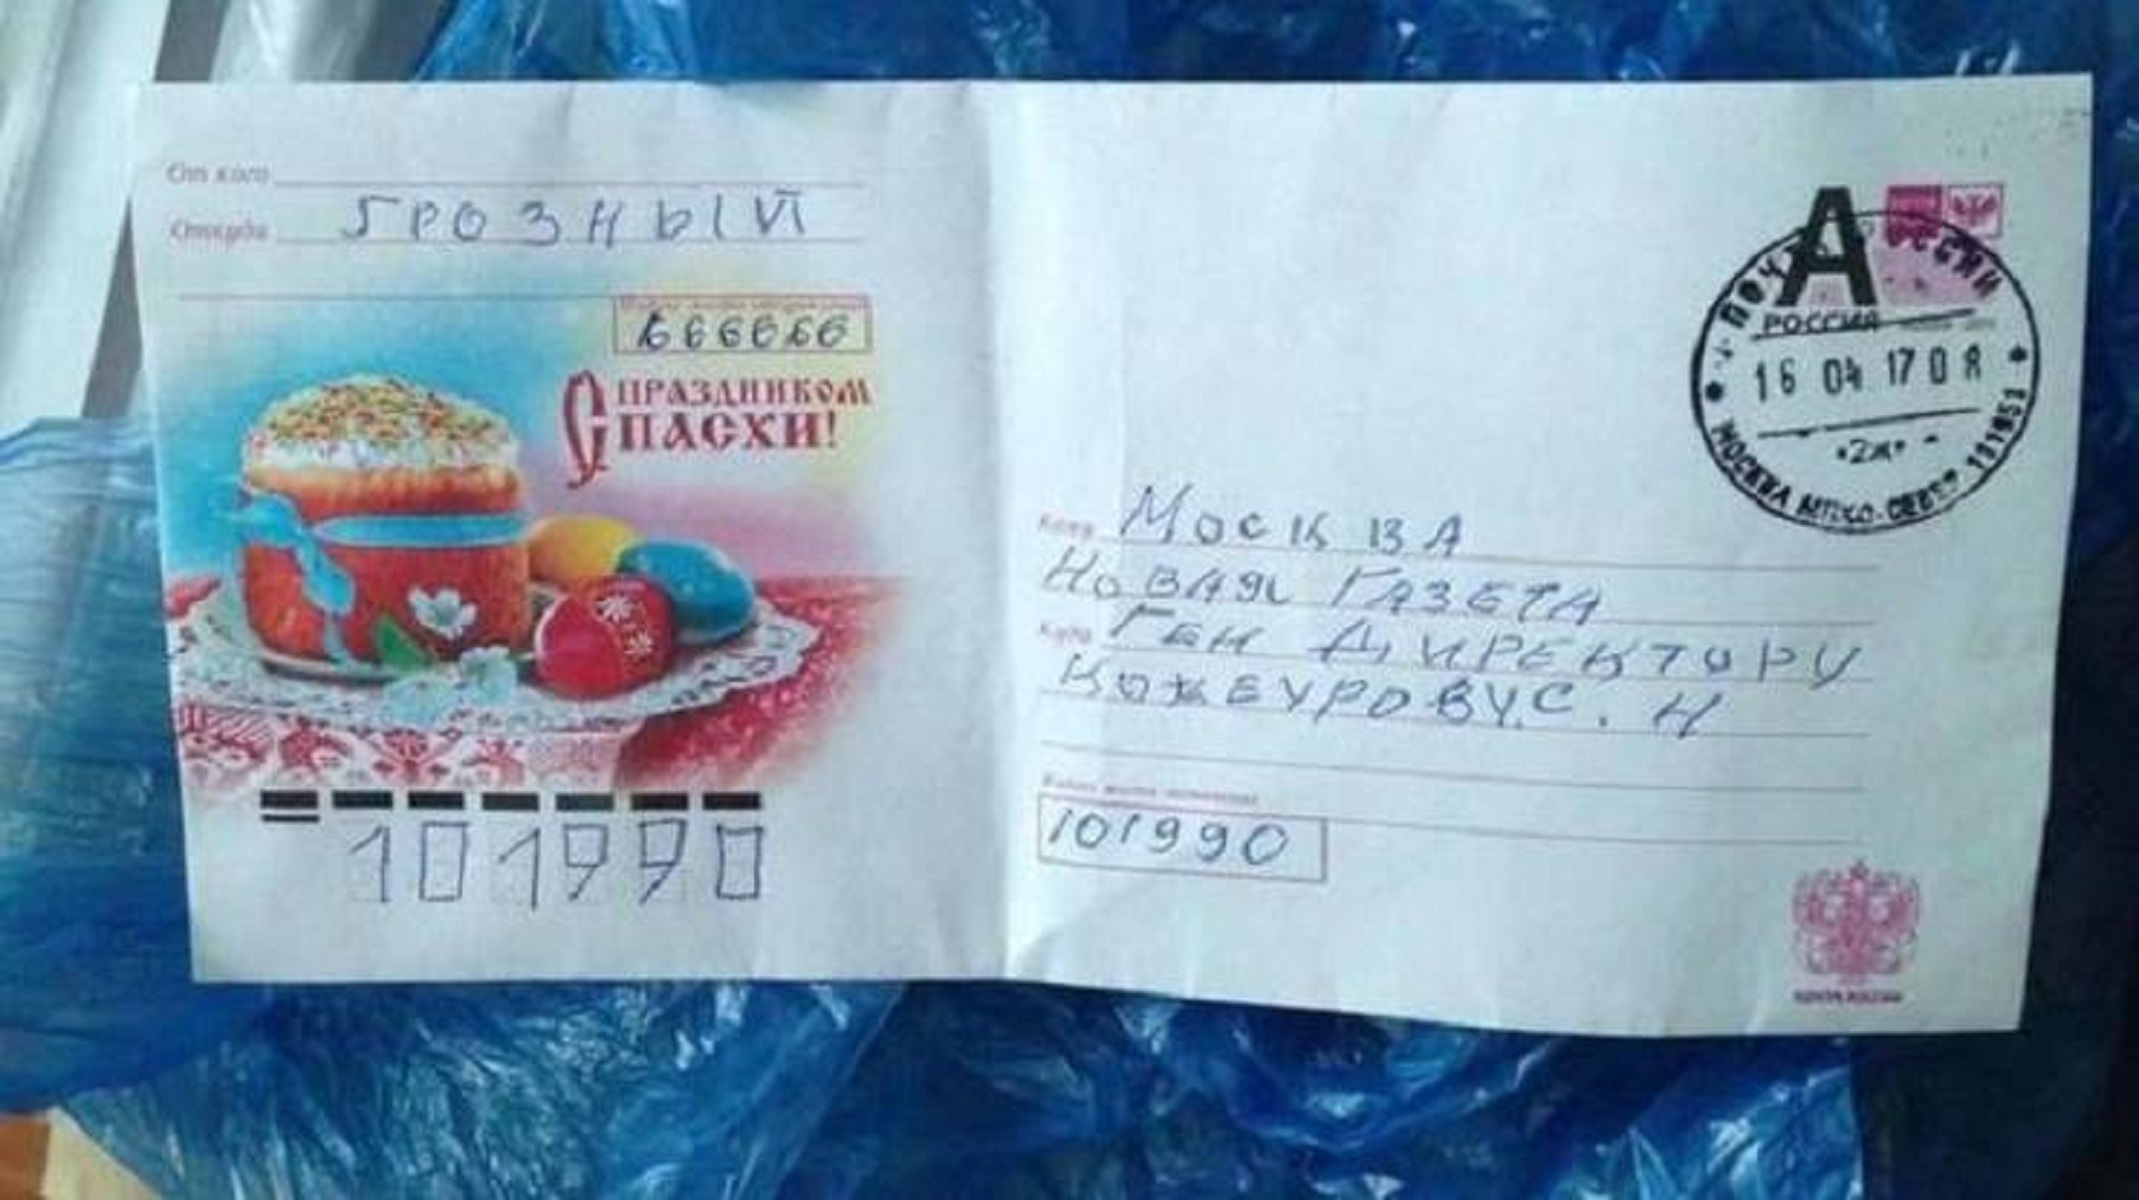 От кого
Откуда ГРОЗНЫЙ
666666
С ПРАЗДНИКОМ
ПАСХИ!
101990
А
ПОЧТА РОССИИ
РОССИЯ
16 04 17 08
*2ж*
МОСКВА МПКО-СЕВЕР 131953
Кому МОСКВА
НОВАЯ ГАЗЕТА
Куда ГЕН ДИРЕКТОРУ
КОЖЕУРОВУ С. Н
Индекс места назначения
101990
ПОЧТА РОССИИ